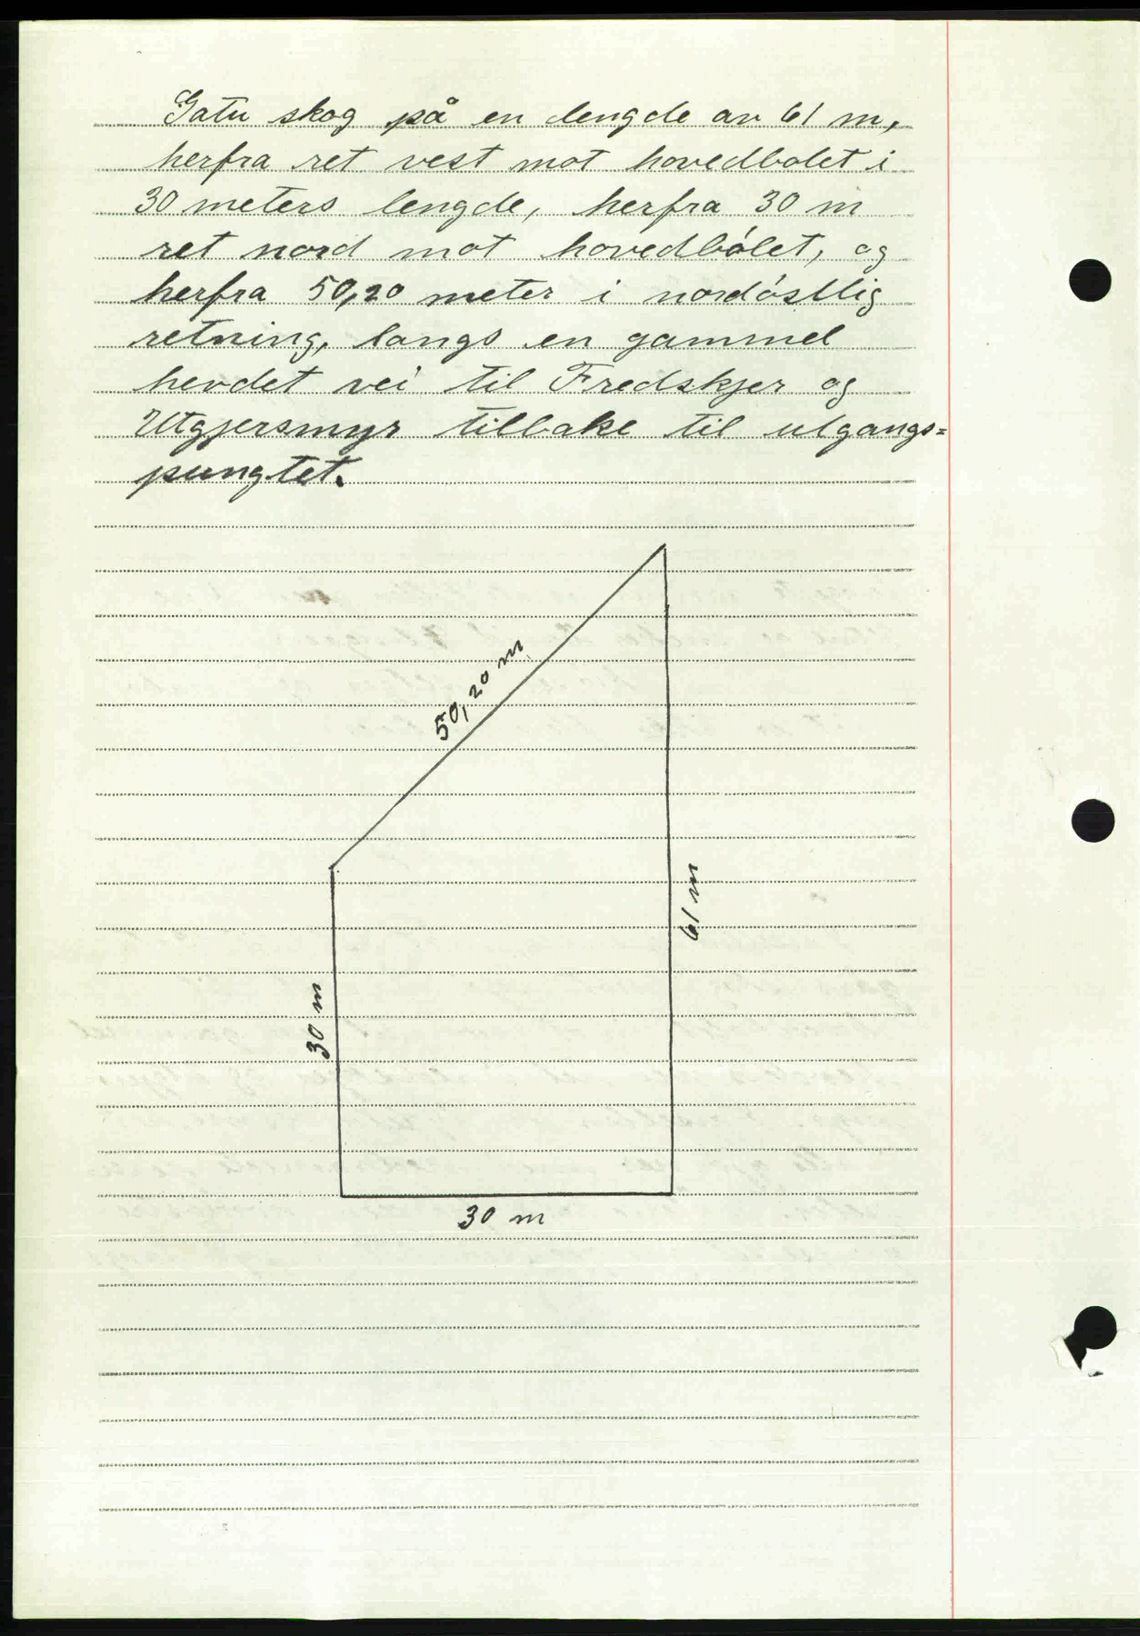 Gatu skog på en lengde av 61 m,
herfra ret vest mot hovedbolet i
30 meters lengde, herfra 30 m
ret nord mot hovedbólet, og
herfra 50,20 meter i nordóstlig
retning, langs en gammel
hevdet vei til Fredskjer og
Utgjersmyr tilbake til utgangs=
pungtet.
50,20 m
61 m
30 m
30 m